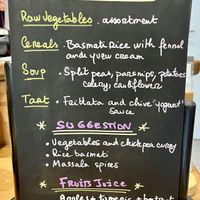 Raw Vegetables . assortment
Cereals . Basmati Rice with fennel
and yuzu cream
Soup . Split peas, parsnips, potatoes
celery, cauliflower
Tart . Faittata and chive "yogourt"
Sauce
* SUGGESTION *
• Vegetables and chickpea curry
• Rice basmati
• Massala spices
* FRUITS JUICE *
Apples + tumeric +